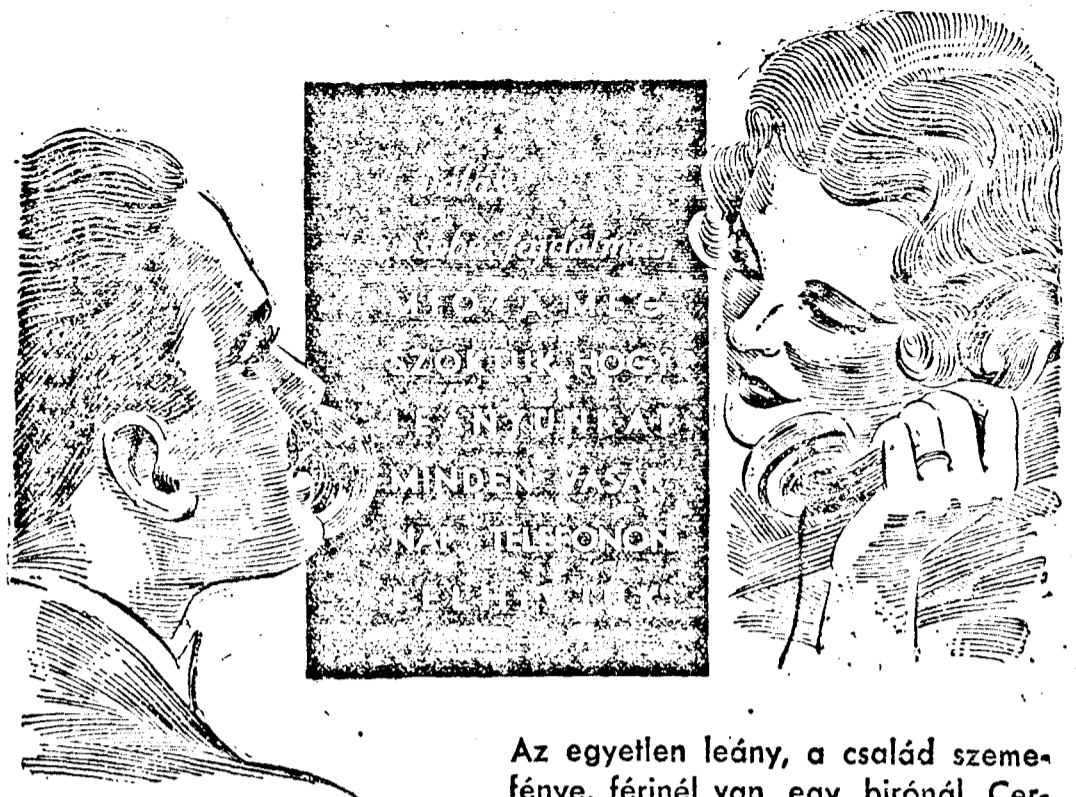 válás
fájdalmas,
MIÓTA MEG
SZOKTUK, HOGY
LEÁNYUNKAT
MINDEN VASÁR-
NAP TELEFÓNON
FELHÍVJUK
Az egyetlen leány, a család szeme-
fénye, férjnél van egy birónál Cer-